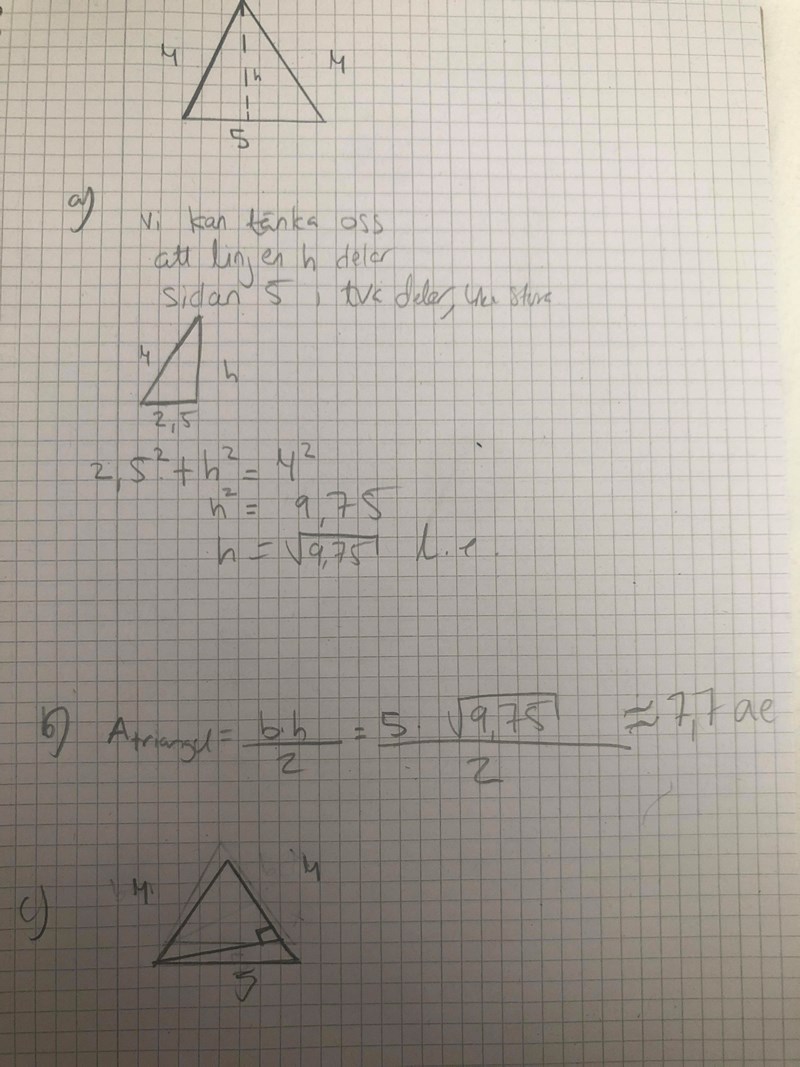 4
4
h
5
a)
Vi kan tänka oss
att linjen h delar
sidan 5 i två delar, lika stora
4
h
2,5
2,5² + h² = 4²
h² = 9,75
h = √9,75 l.e.
b) Atriangel = b·h/2 = 5·√9,75/2 ≈ 7,7 ae
4
4
c)
5